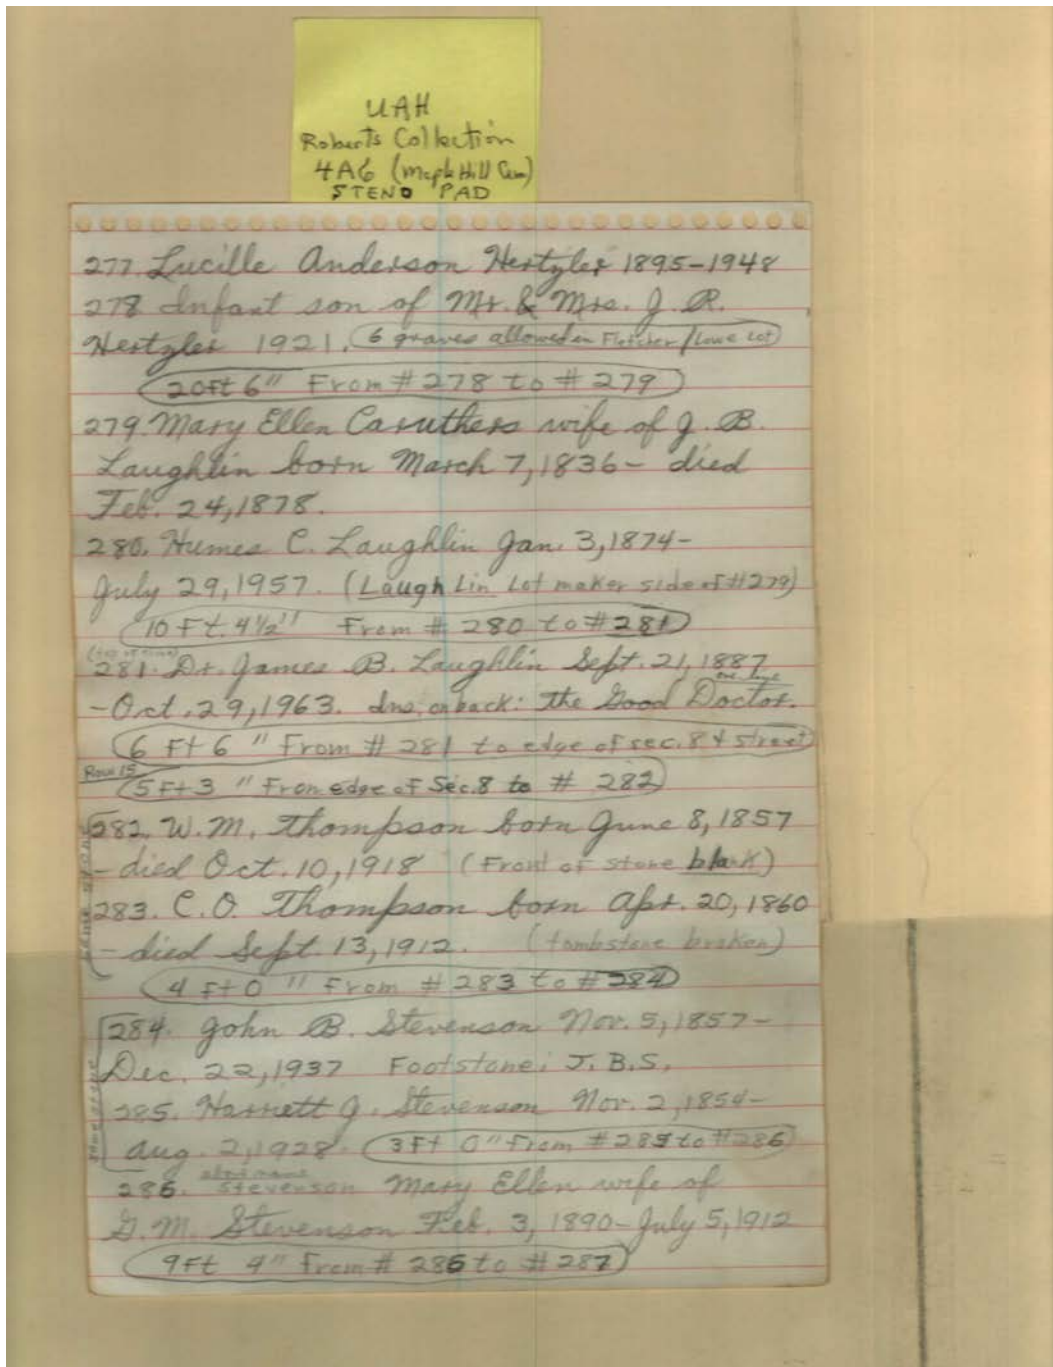 UAH
Roberts Collection
4A6 (Maple Hill Cem)
STENO PAD
277. Lucille Anderson Hertzler 1895-1948
278. Infant son of Mr. & Mrs. J. R.
Hertzler 1921. (6 graves allowed in Fletcher/Lowe Lot)
(20ft 6" From # 278 to # 279)
279. Mary Ellen Caruthers wife of J. B.
Laughlin born March 7, 1836 - died
Feb. 24, 1878.
280. Humes C. Laughlin Jan. 3, 1874-
July 29, 1957. (Laugh Lin Lot maker side of #279)
(10 Ft. 4½" From # 280 to # 281)
281. Dr. James B. Laughlin Sept. 21, 1887
one line
- Oct. 29, 1963. Ins. on back: The Good Doctor.
(6 Ft 6" From # 281 to edge of sec. 8 & street)
Row 15
(5 Ft 3" From edge of Sec. 8 to # 282)
same stone
282. W. M. Thompson born June 8, 1857
- died Oct. 10, 1918 (Front of stone blank)
283. C. O. Thompson born Apr. 20, 1860
- died Sept. 13, 1912. (tombstone broken)
(4 Ft 0" From # 283 to # 284)
same stone
284. John B. Stevenson Nov. 5, 1857-
Dec. 22, 1937 Footstone: J. B. S.
285. Harriett J. Stevenson Nov. 2, 1854-
Aug. 2, 1928. (3 Ft 0" From # 285 to # 286)
286. Stevenson Mary Ellen wife of
G. M. Stevenson Feb. 3, 1890 - July 5, 1912
(9Ft 4" From # 286 to # 287)